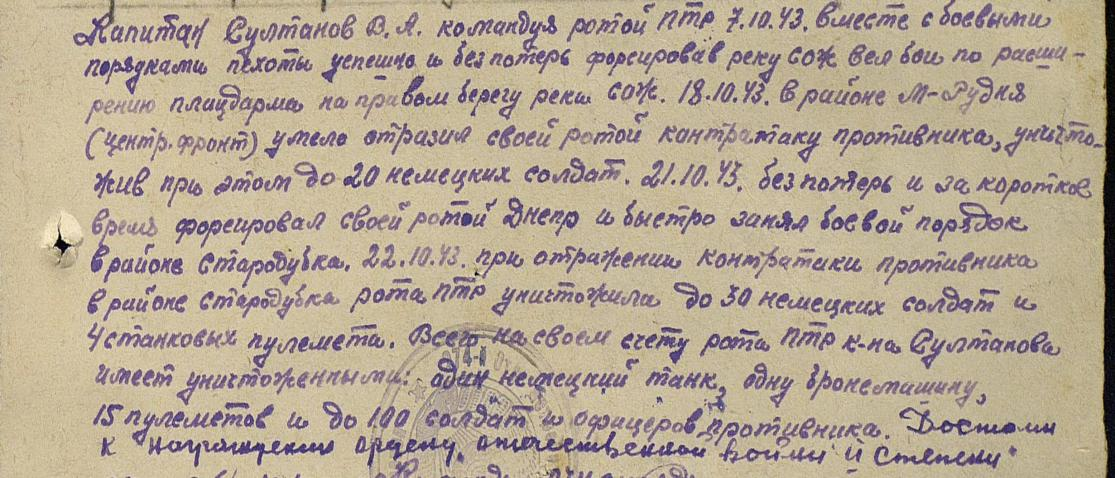 Капитан Султанов В.А. командуя ротой ПТР 7.10.43. вместе с боевыми
порядками пехоты успешно и без потерь форсировав реку Сож вел бои по расши-
рению плацдарма на правом берегу реки Сож. 18.10.43. в районе М-Рудня
(центр. фронт) умело отразил своей ротой контратаку противника, уничто-
жив при этом до 20 немецких солдат. 21.10.43. без потерь и за короткое
время форсировал своей ротой Днепр и быстро занял боевой порядок
в районе Стародубка. 22.10.43. при отражении контратаки противника
в районе Стародубка рота ПТР уничтожила до 30 немецких солдат и
4 станковых пулемета. Всего на своем счету рота ПТР к-на Султанова
имеет уничтоженными: один немецкий танк, одну бронемашину,
15 пулеметов и до 100 солдат и офицеров противника. Достоин
к награждению ордену "отечественной войны II степени"